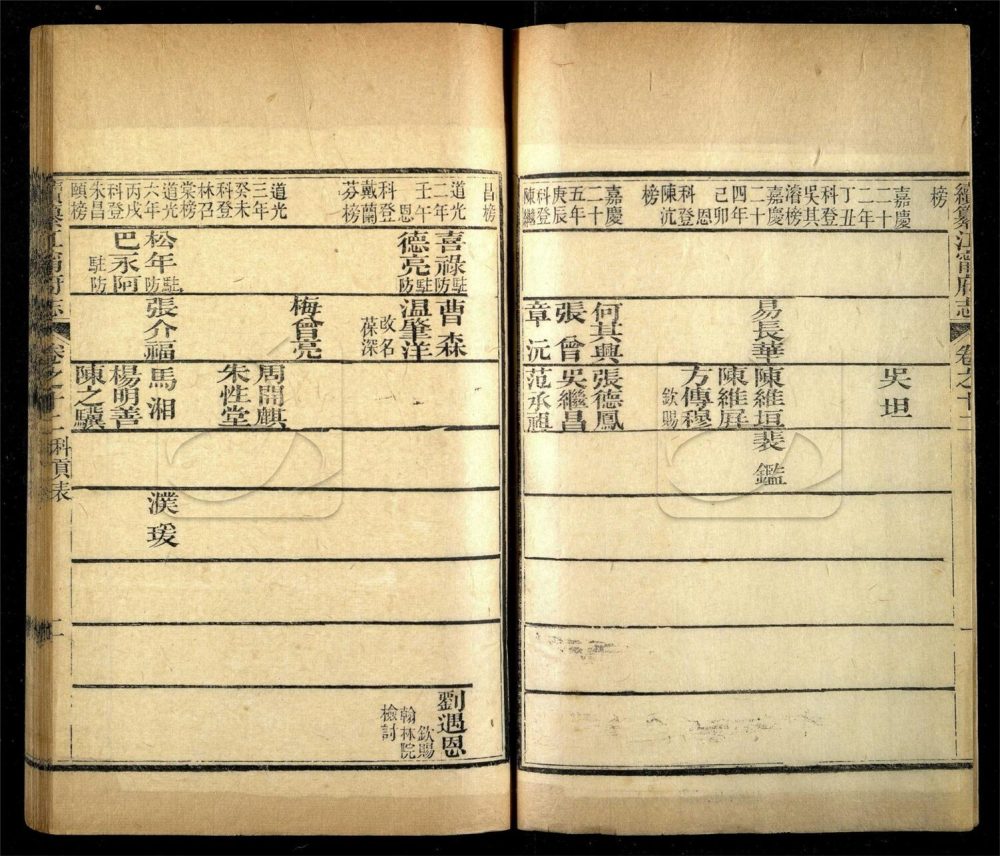 續纂江甯府志
卷之十二
一
榜
嘉慶
二十
二年
丁丑
科登
吳其
濬榜
嘉慶
二十
四年
己卯
恩
科登
陳沆
榜
嘉慶
二十
五年
庚辰
科登
陳繼
易長華
何其興
張曾
章沅
吳坦
陳維垣
陳維屏
方傳穆
欽賜
張德鳳
吳繼昌
范承祖
裴鑑
昌榜
道光
二年
壬午
恩
科登
戴蘭
芬榜
道光
三年
癸未
科登
林召
棠榜
道光
六年
丙戌
科登
朱昌
頤榜
喜祿駐防
德亮駐防
松年駐防
巴永阿
駐防
曹森
溫肇洋
改名
葆深
梅曾亮
張介福
周開麒
朱性堂
馬湘
楊明善
陳之驥
濮瑗
劉遇恩
欽賜
翰林院
檢討
續纂江甯府志
卷之十二
科貢表
二